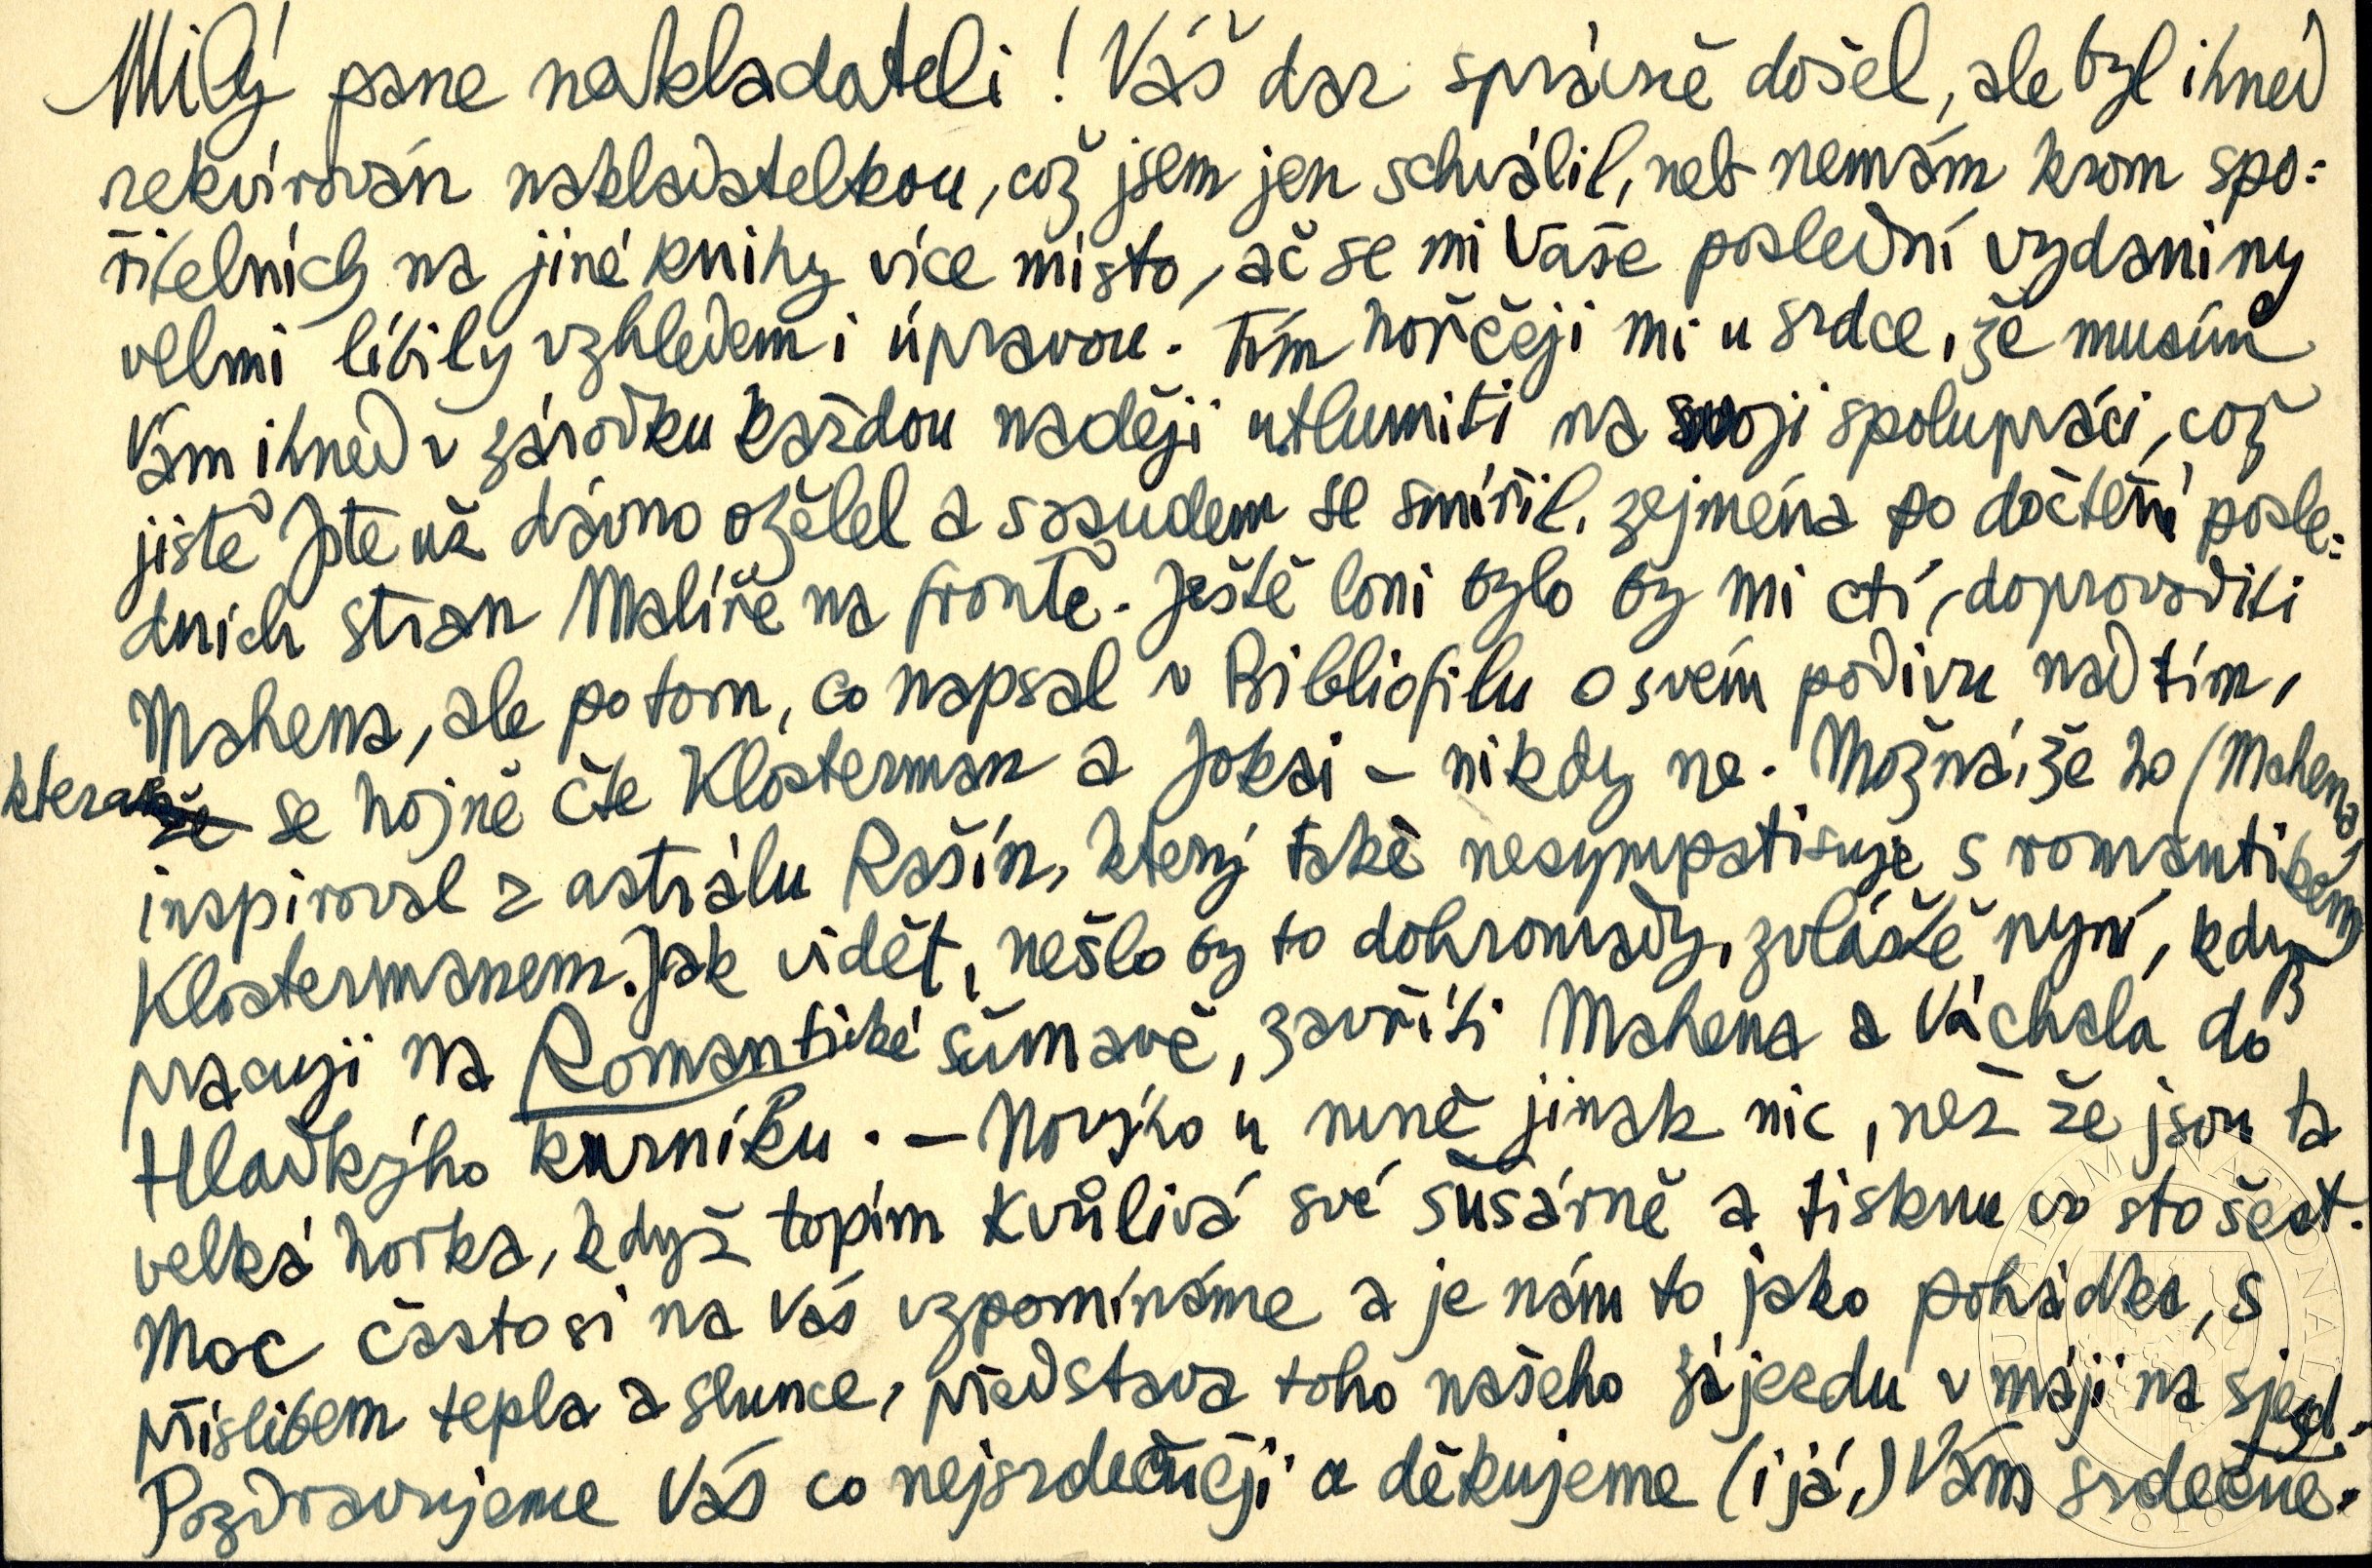 Milý pane nakladateli! Váš dar správně došel, ale byl ihned
rekvírován nakladatelkou, což jsem jen schválil, neb nemám krom spo-
řitelních na jiné knihy více místo, ač se mi Vaše poslední vydaniny
velmi líbily vzhledem i úpravou. Tím hořčeji mi u srdce, že musím
Vám ihned v zárodku každou naději utlumiti na svoji spolupráci, což
jistě jste už dávno oželel a s osudem se smířil, zejména po dočtení posle-
dních stran Malíře na frontě. Ještě loni bylo by mi ctí, doprovoditi
Mahena, ale potom, co napsal v Bibliofilu o svém podivu nad tím,
kterak se hojně čte Klosterman a Jokai – nikdy ne. Možná, že ho (Mahena)
inspiroval z astrálu Rašín, který také nesympatisuje s romantikem
Klostermanem. Jak vidět, nešlo by to dohromady, zvláště nyní, když
pracuji na Romantické šumavě, zavříti Mahena a Váchala do
Hladkýho kurníku. – Novýho u mně jinak nic, než že jsou ta
velká horka, když topím kvůlivá své sušárně a tisknu co sto šest.
Moc často si na Vás vzpomínáme a je nám to jako pohádka, s
příslibem tepla a slunce, představa toho našeho zájezdu v máji na sjezd.-
Pozdravujeme Vás co nejsrdečněji a děkujeme (i já,) Vám srdečně.